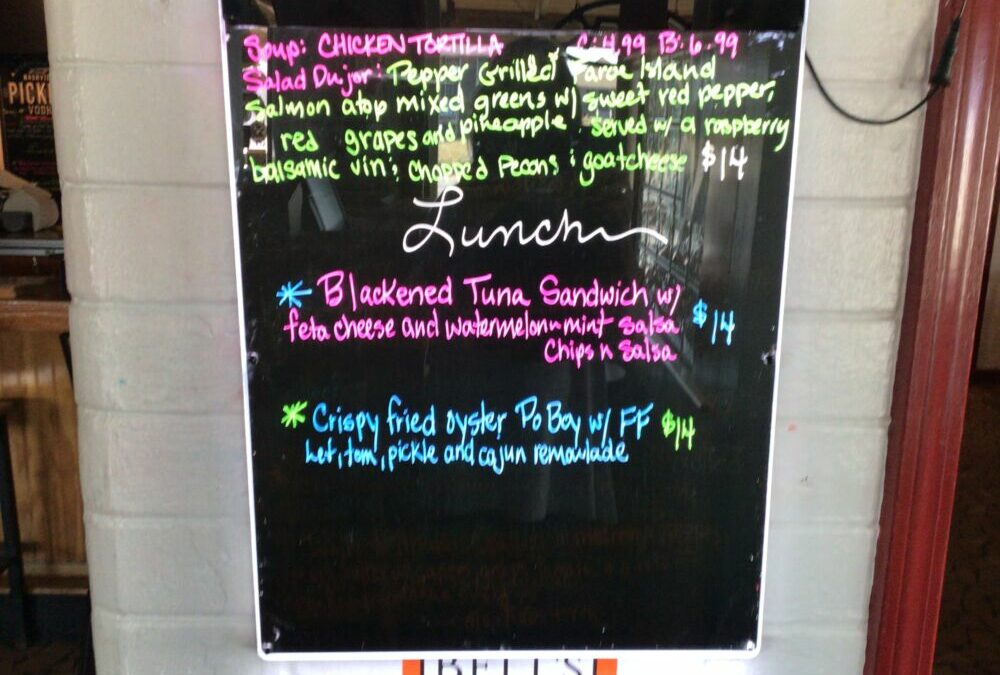 Soup: CHICKEN TORTILLA C: 4.99 B: 6.99
Salad Dujor: Pepper Grilled Faroe Island
Salmon atop mixed greens w/ sweet red pepper,
red grapes and pineapple, served w/ a raspberry
balsamic vin; chopped Pecans; goatcheese $14
Lunch
* Blackened Tuna Sandwich w/
feta cheese and watermelon-mint salsa $14
Chips n Salsa
* Crispy fried oyster Po Boy w/ FF $14
Let, tom, pickle and cajun remoulade
BELL'S
PICK
VODK